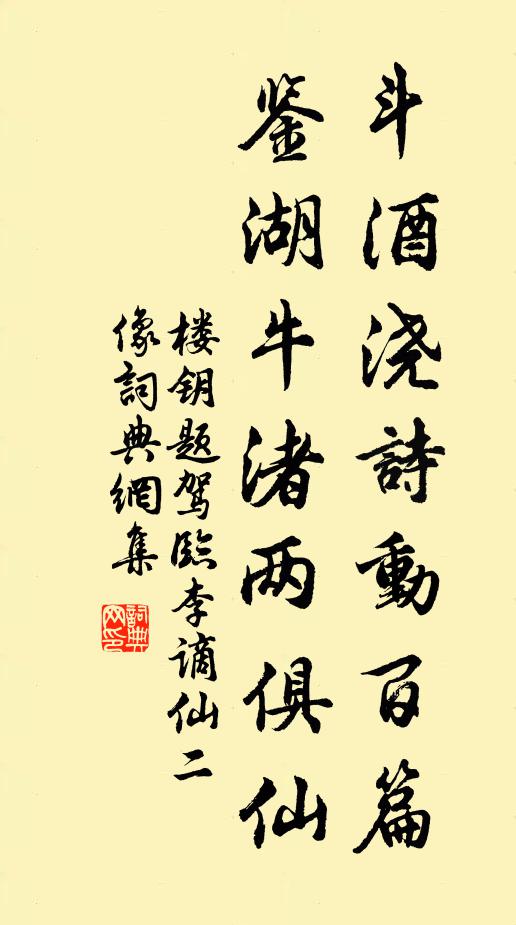 斗酒浇詩動百篇
鉴湖牛渚两俱仙
楼钥题驾临李谪仙二
像詞典網集
詞典
网印